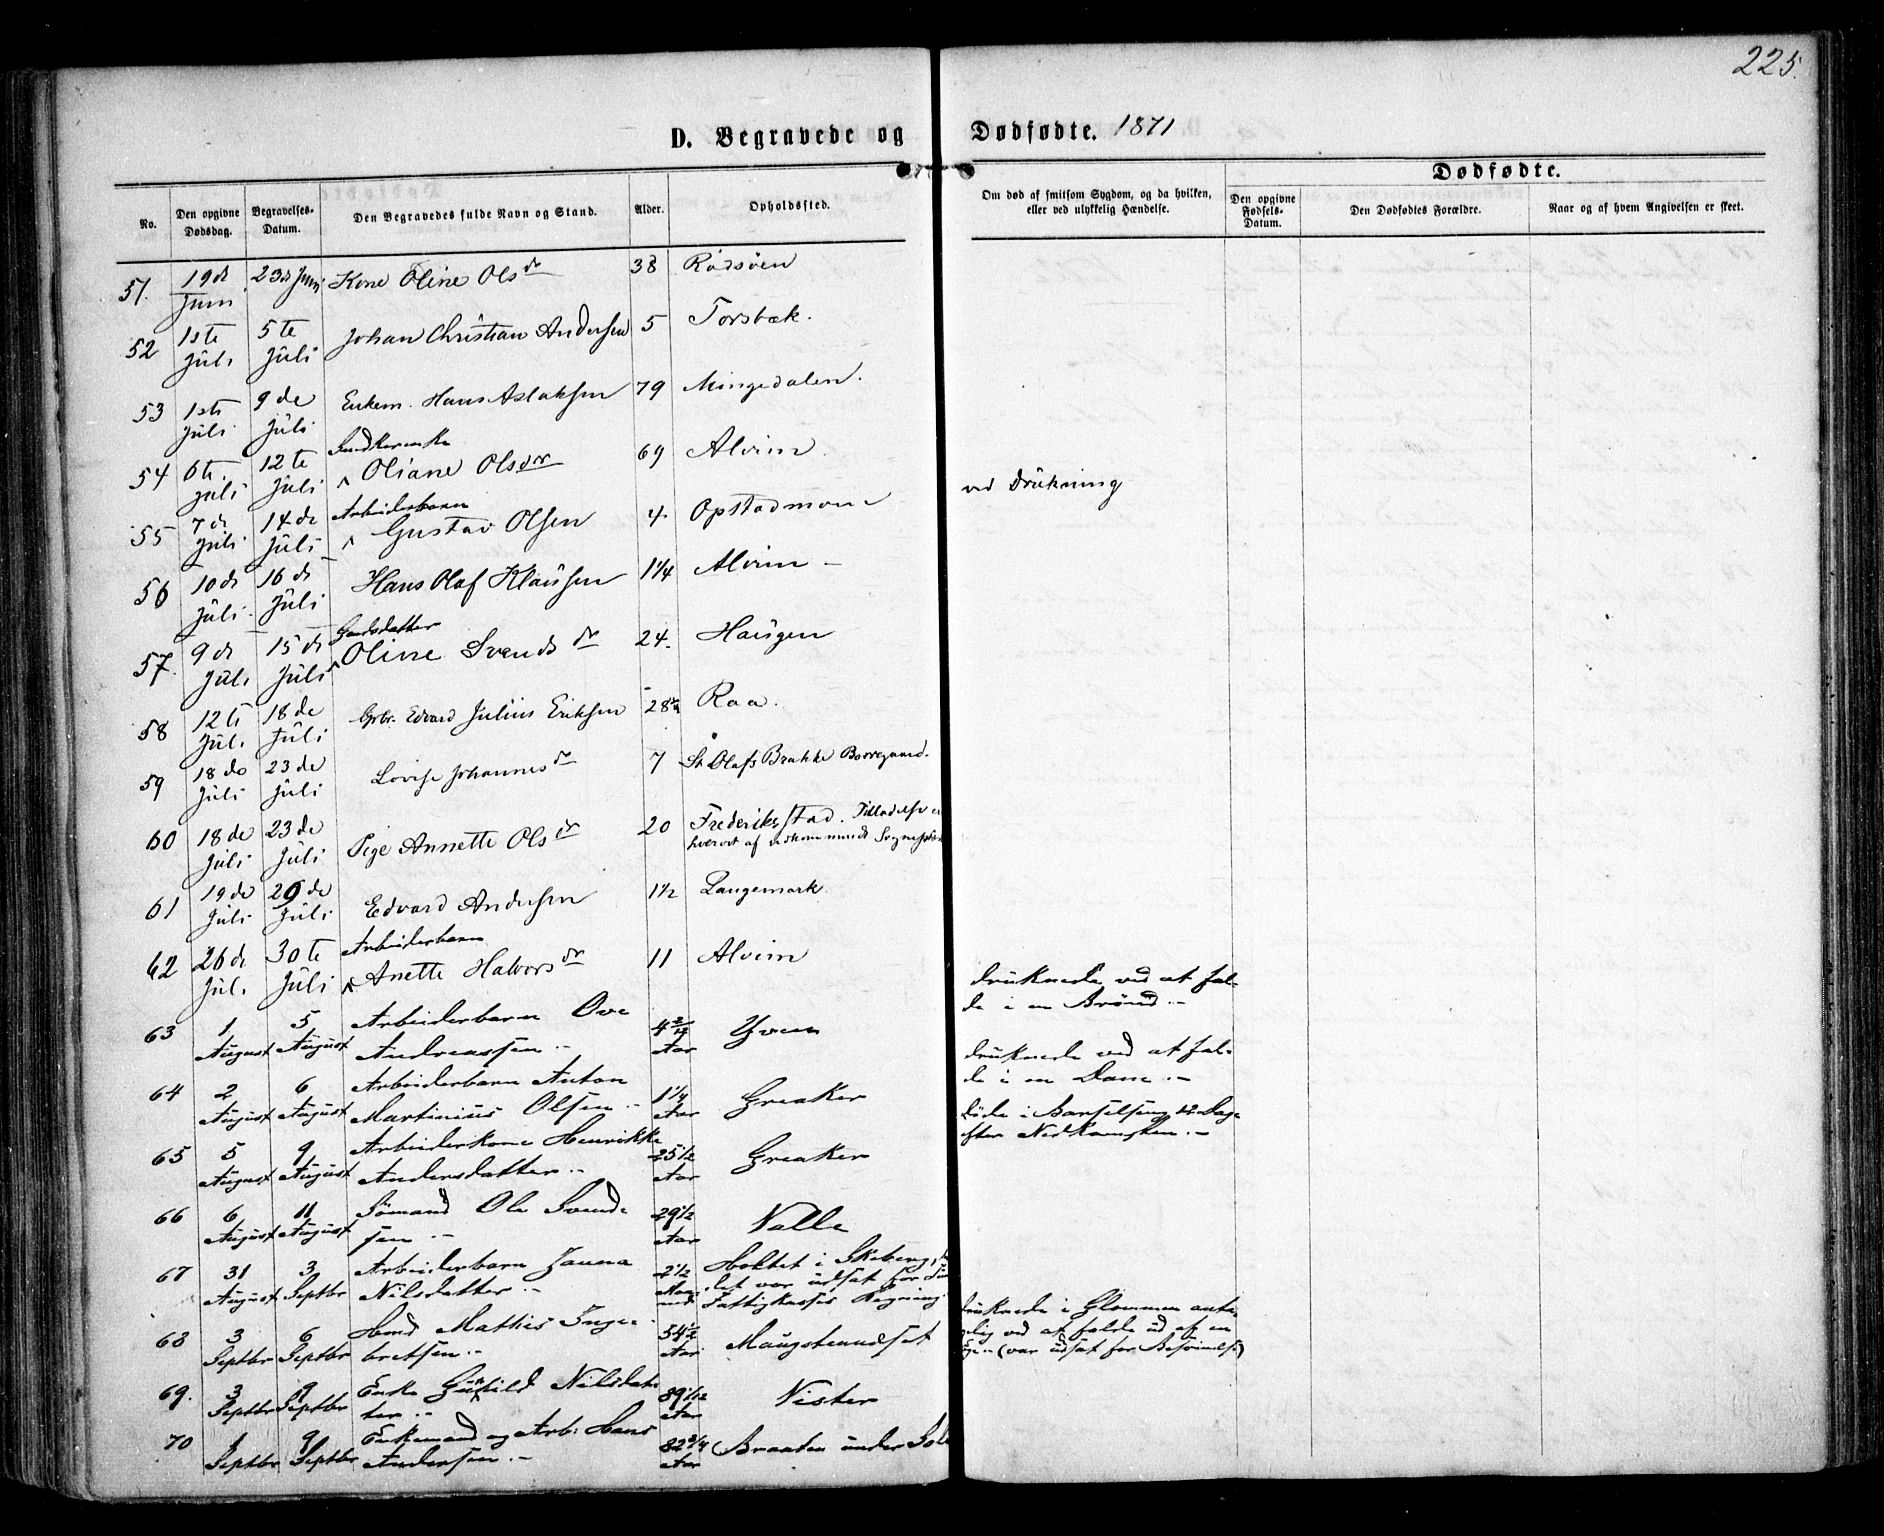 225.
D. Begravede og Dødfødte. 1871
No. | Den opgivne Dødsdag. | Begravelses-Datum. | Den Begravedes fulde Navn og Stand. | Alder. | Opholdssted. | Om død af smitsom Sygdom, og da hvilken, eller ved ulykkelig Hændelse. | Dødfødte.
Den opgivne Fødsels-Datum. | Den Dødfødtes Forældre. | Naar og af hvem Angivelsen er skeet.
51. 19de Juni 23de Juni Kone Oline Olsdr 38 Rødsøen
52 1ste Juli 5te Juli Johan Christian Andersen 5 Torsbæk.
53 1ste Juli 9de Juli Enkem. Hans Aslaksen 79 Mingedalen.
54 6te Juli 12te Juli Oliane Olsdr 69 Alvim
55 7de Juli 14de Juli Arbeiderbarn Gustav Olsen 4. Opstadmoen ved Drukning
56 10de Juli 16de Juli Hans Olaf Klausen 1 1/4 Alvim
57. 9de Juli 15de Juli Oline Svendsdr 24. Haugen
58 12te Juli 18de Juli Grbr. Edvard Julius Eriksen 28 Raa.
59 18de Juli 23de Juli Lovise Johannesdr 7 St. Olafs Brakke Borregaard.
60 18de Juli 23de Juli Pige Annette Olsdr 20 Frederiksstad. Tilladelse
hvervet af vedkommende Sogneprest
61 19de Juli 29de Juli Edvard Andersen 1 1/2 Langemark.
62 26de Juli 30te Juli Arbeiderbarn Anette Halvorsdr 11 Alvim
63 1 August 5 August Arbeiderbarn Ove Andreassen 4 2/12 Aar Yven druknede ved at falde i en Brønd.
64 2 August 6 August Arbeiderbarn Anton Martinius Olsen 1 1/4 Aar Greaker druknede ved at falde i en Dam.
65 5 August 9 August Arbeiderkone Henrikke Andersdatter 25 1/2 Aar Greaker Døde i Barselseng 12 Dage efter Nedkomsten.
66 6 August 11 August Sømand Ole Svendsen 29 1/2 Aar Valle
67 31 August 3 Septbr Arbeiderbarn Janna Nilsdatter 2 1/2 Maaned Holtet i Skeberg,
det var udsat for
Fattigkasses Regning
68 3 Septbr 6 Septbr Mathis Ingebretsen 54 1/2 Aar Maugstenudset druknede i Glommen antagelig ved at falde ud af en
(var udsat for Besvimelse)
69. 3 Septbr 9 Septbr Enke Gunhild Nilsdatter 89 1/12 Aar Nister
70 1 Septbr 9 Septbr Enkemand og Arb: Hans Andersen 82 3/4 Aar Braaten under